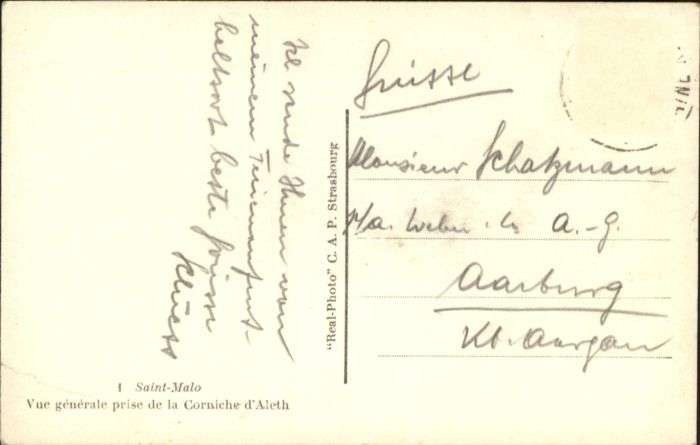 Ich sende Ihnen von
meinem Ferienaufent-
haltsort beste Grüsse
Suisse
Monsieur Schatzmann
A.-G.
Aarburg
Kt. Aargau
"Real-Photo" C. A. P. Strasbourg
1 Saint-Malo
Vue générale prise de la Corniche d'Aleth